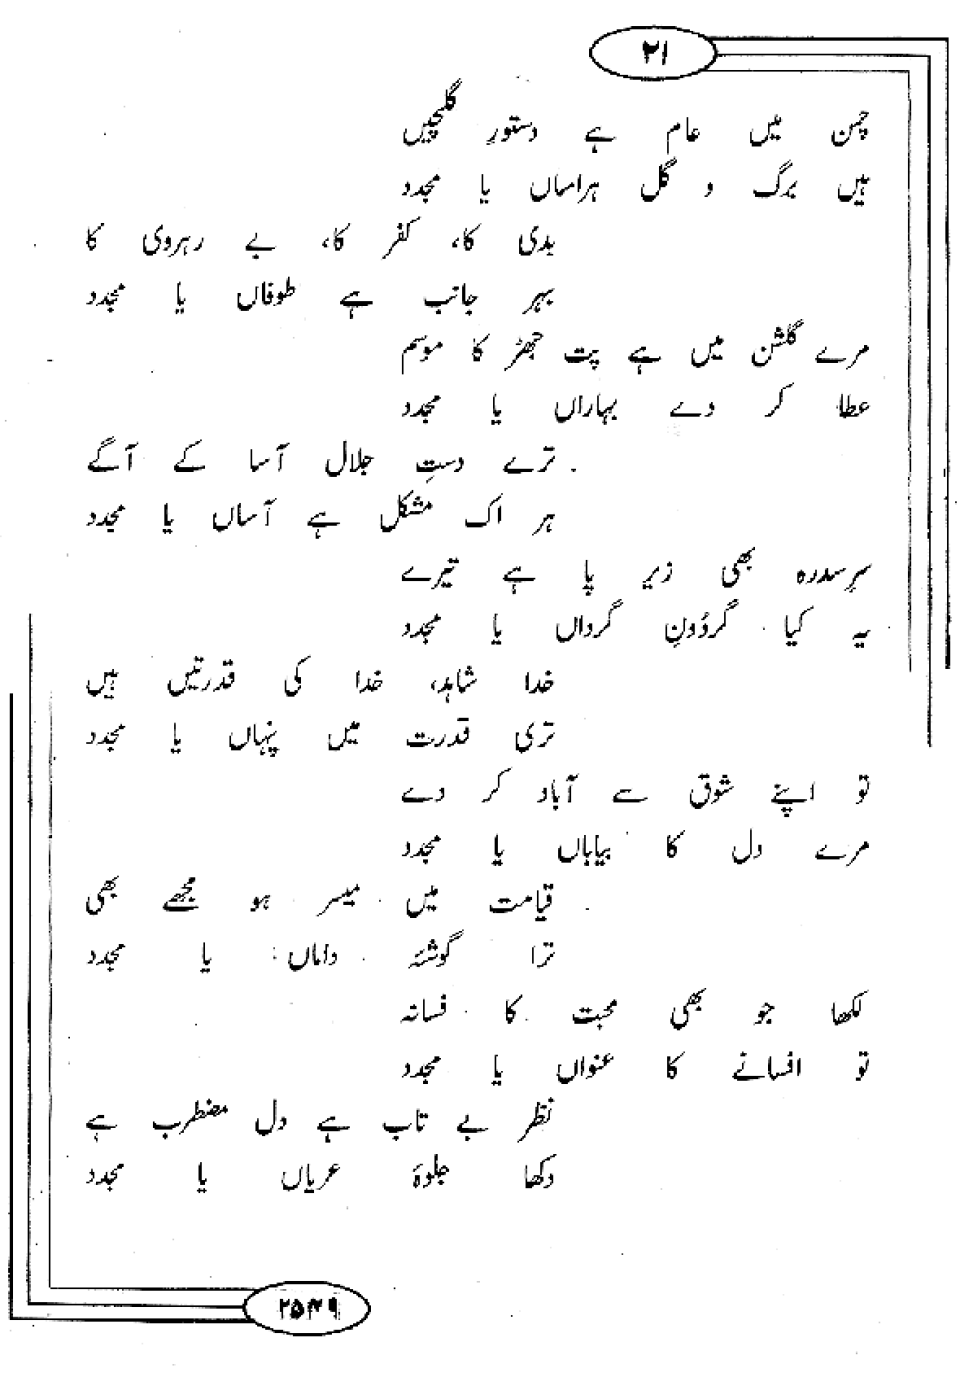 ۲۱
چمن میں عام ہے دستورِ گلچیں
ہیں برگ و گل ہراساں یا مجدد
بدی کا، کفر کا، بے رہروی کا
بہر جانب ہے طوفاں یا مجدد
مرے گلشن میں ہے پت جھڑ کا موسم
عطا کر دے بہاراں یا مجدد
ترے دستِ جلال آسا کے آگے
ہر اک مشکل ہے آساں یا مجدد
سرِسدرہ بھی زیرِ پا ہے تیرے
یہ کیا گردُونِ گرداں یا مجدد
خدا شاہد، خدا کی قدرتیں ہیں
تری قدرت میں پنہاں یا مجدد
تو اپنے شوق سے آباد کر دے
مرے دل کا بیاباں یا مجدد
قیامت میں میسر ہو مجھے بھی
ترا گوشۂ داماں یا مجدد
لکھا جو بھی محبت کا فسانہ
تو افسانے کا عنواں یا مجدد
نظر بے تاب ہے دل مضطرب ہے
دکھا جلوۂ عریاں یا مجدد
۲۵۴۹